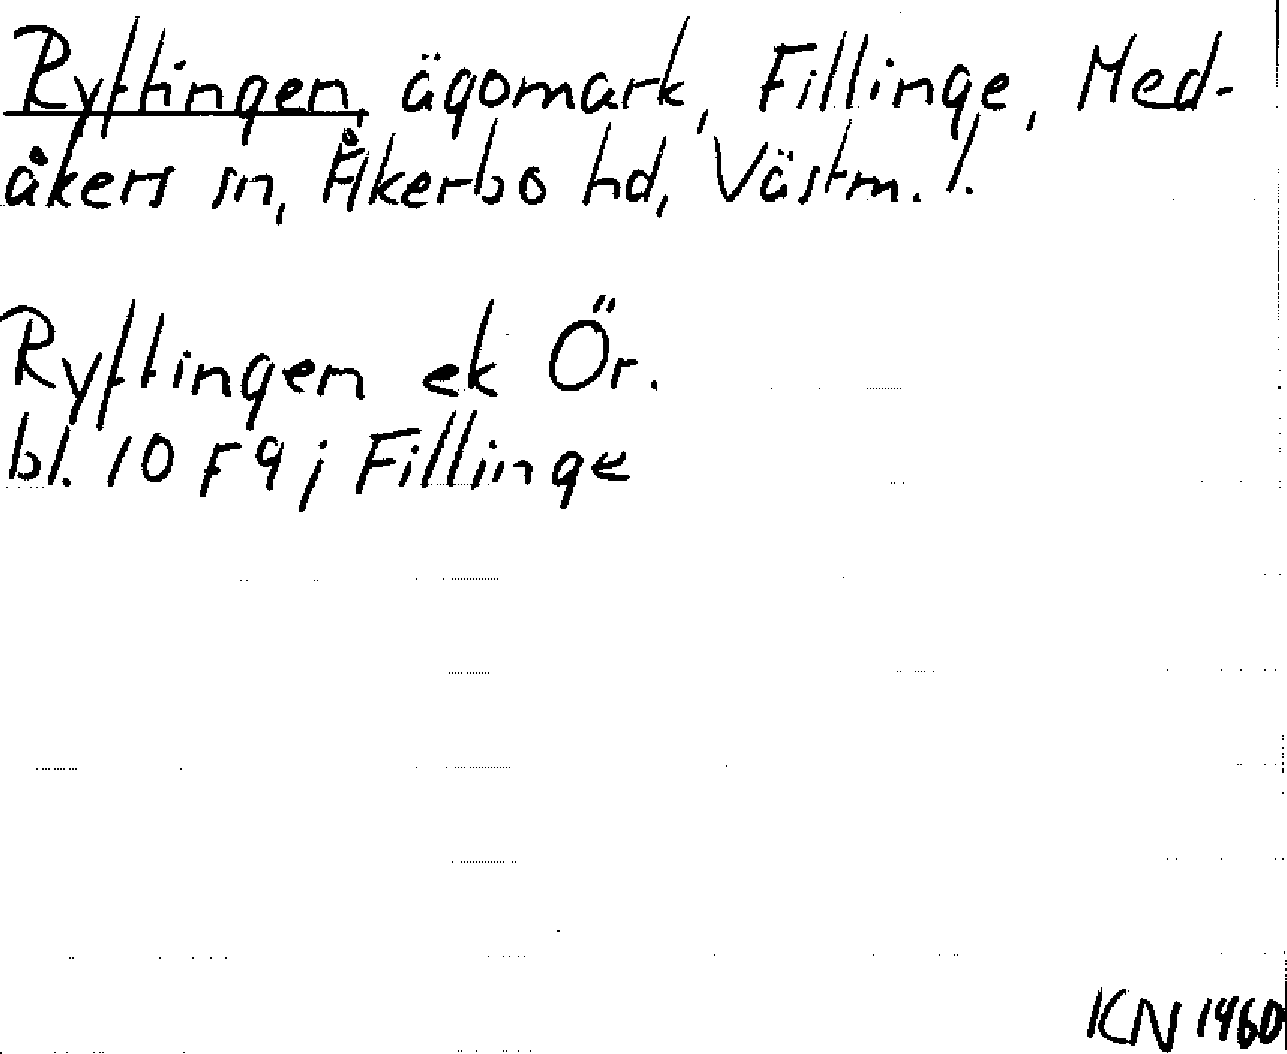 Ryftingen, ägomark, Fillinge, Med-
åkers sn, Åkerbo hd, Västm. l.
Ryftingen ek Ör.
bl. 10 F 9 j Fillinge
KN 1960